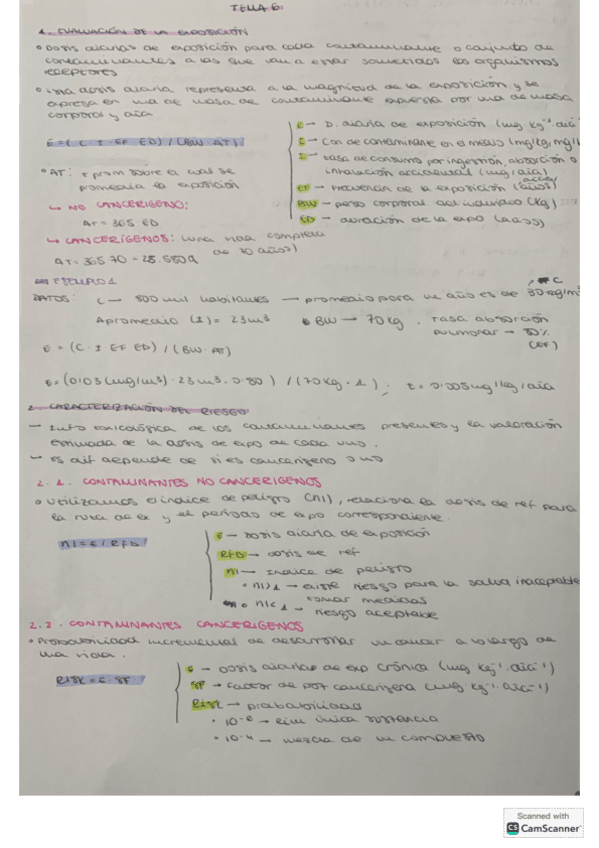 TEMA 6:
1. EVALUACIÓN DE LA EXPOSICIÓN
• Dosis diarias de exposición para cada contaminante o conjunto de
contaminantes a las que van a estar sometidos los organismos
receptores
• Una dosis diaria representa a la magnitud de la exposición y se
expresa en ud de masa de contaminante expuesta por ud de masa
corporal y día
E = (C · I · EF · ED) / (BW · AT)
E → D. diaria de exposición (mg kg⁻¹ día⁻¹)
C → Con de contaminante en el medio (mg/kg, mg/l
I → tasa de consumo por ingestión, absorción o
inhalación accidental (mg/día)
EF → Frecuencia de la exposición (años)
BW → peso corporal del individuo (kg)
ED → duración de la expo (años)
• AT: t prom sobre el cual se
promedia la exposición
↳ NO CANCERÍGENO:
AT = 365 · ED
↳ CANCERÍGENOS: (una vida completa
de 70 años)
AT = 365 · 70 = 25.550d
EJEMPLO 1
DATOS: C → 500 mil habitantes → promedio para un año es de 30 kg/m³
Apromedio (I) = 23 m³ BW → 70 kg . Tasa absorción
pulmonar → 80%
(EF)
E = (C · I · EF · ED) / (BW · AT)
E = (0'03 (mg/m³) · 23 m³ · 0.80) / (70 kg · 1) ; E = 0'008 mg/kg/día
2. CARACTERIZACIÓN DEL RIESGO
→ Info toxicológica de los contaminantes presentes y la valoración
estimada de la dosis de expo de cada uno.
→ es dif depende de si es cancerígeno o no
2.1. CONTAMINANTES NO CANCERÍGENOS
• Utilizamos el índice de peligro (HI), relaciona la dosis de ref para
la ruta de ex y el periodo de expo correspondiente.
HI = E / RFD
E → Dosis diaria de exposición
RFD → dosis de ref
HI → Índice de peligro
• HI > 1 → existe riesgo para la salud inaceptable
tomar medidas
• HI < 1 → riesgo aceptable
2.2. CONTAMINANTES CANCERÍGENOS
• Probabilidad incremental de desarrollar un cáncer a lo largo de
una vida.
RISK = E · SF
E → Dosis diarias de exp crónica (mg kg⁻¹ · día⁻¹)
SF → Factor de pot cancerígena (mg kg⁻¹ · día⁻¹)
RISK → probabilidad
única sustancia
• 10⁻⁴ → mezcla de un compuesto
Scanned with
CS CamScanner